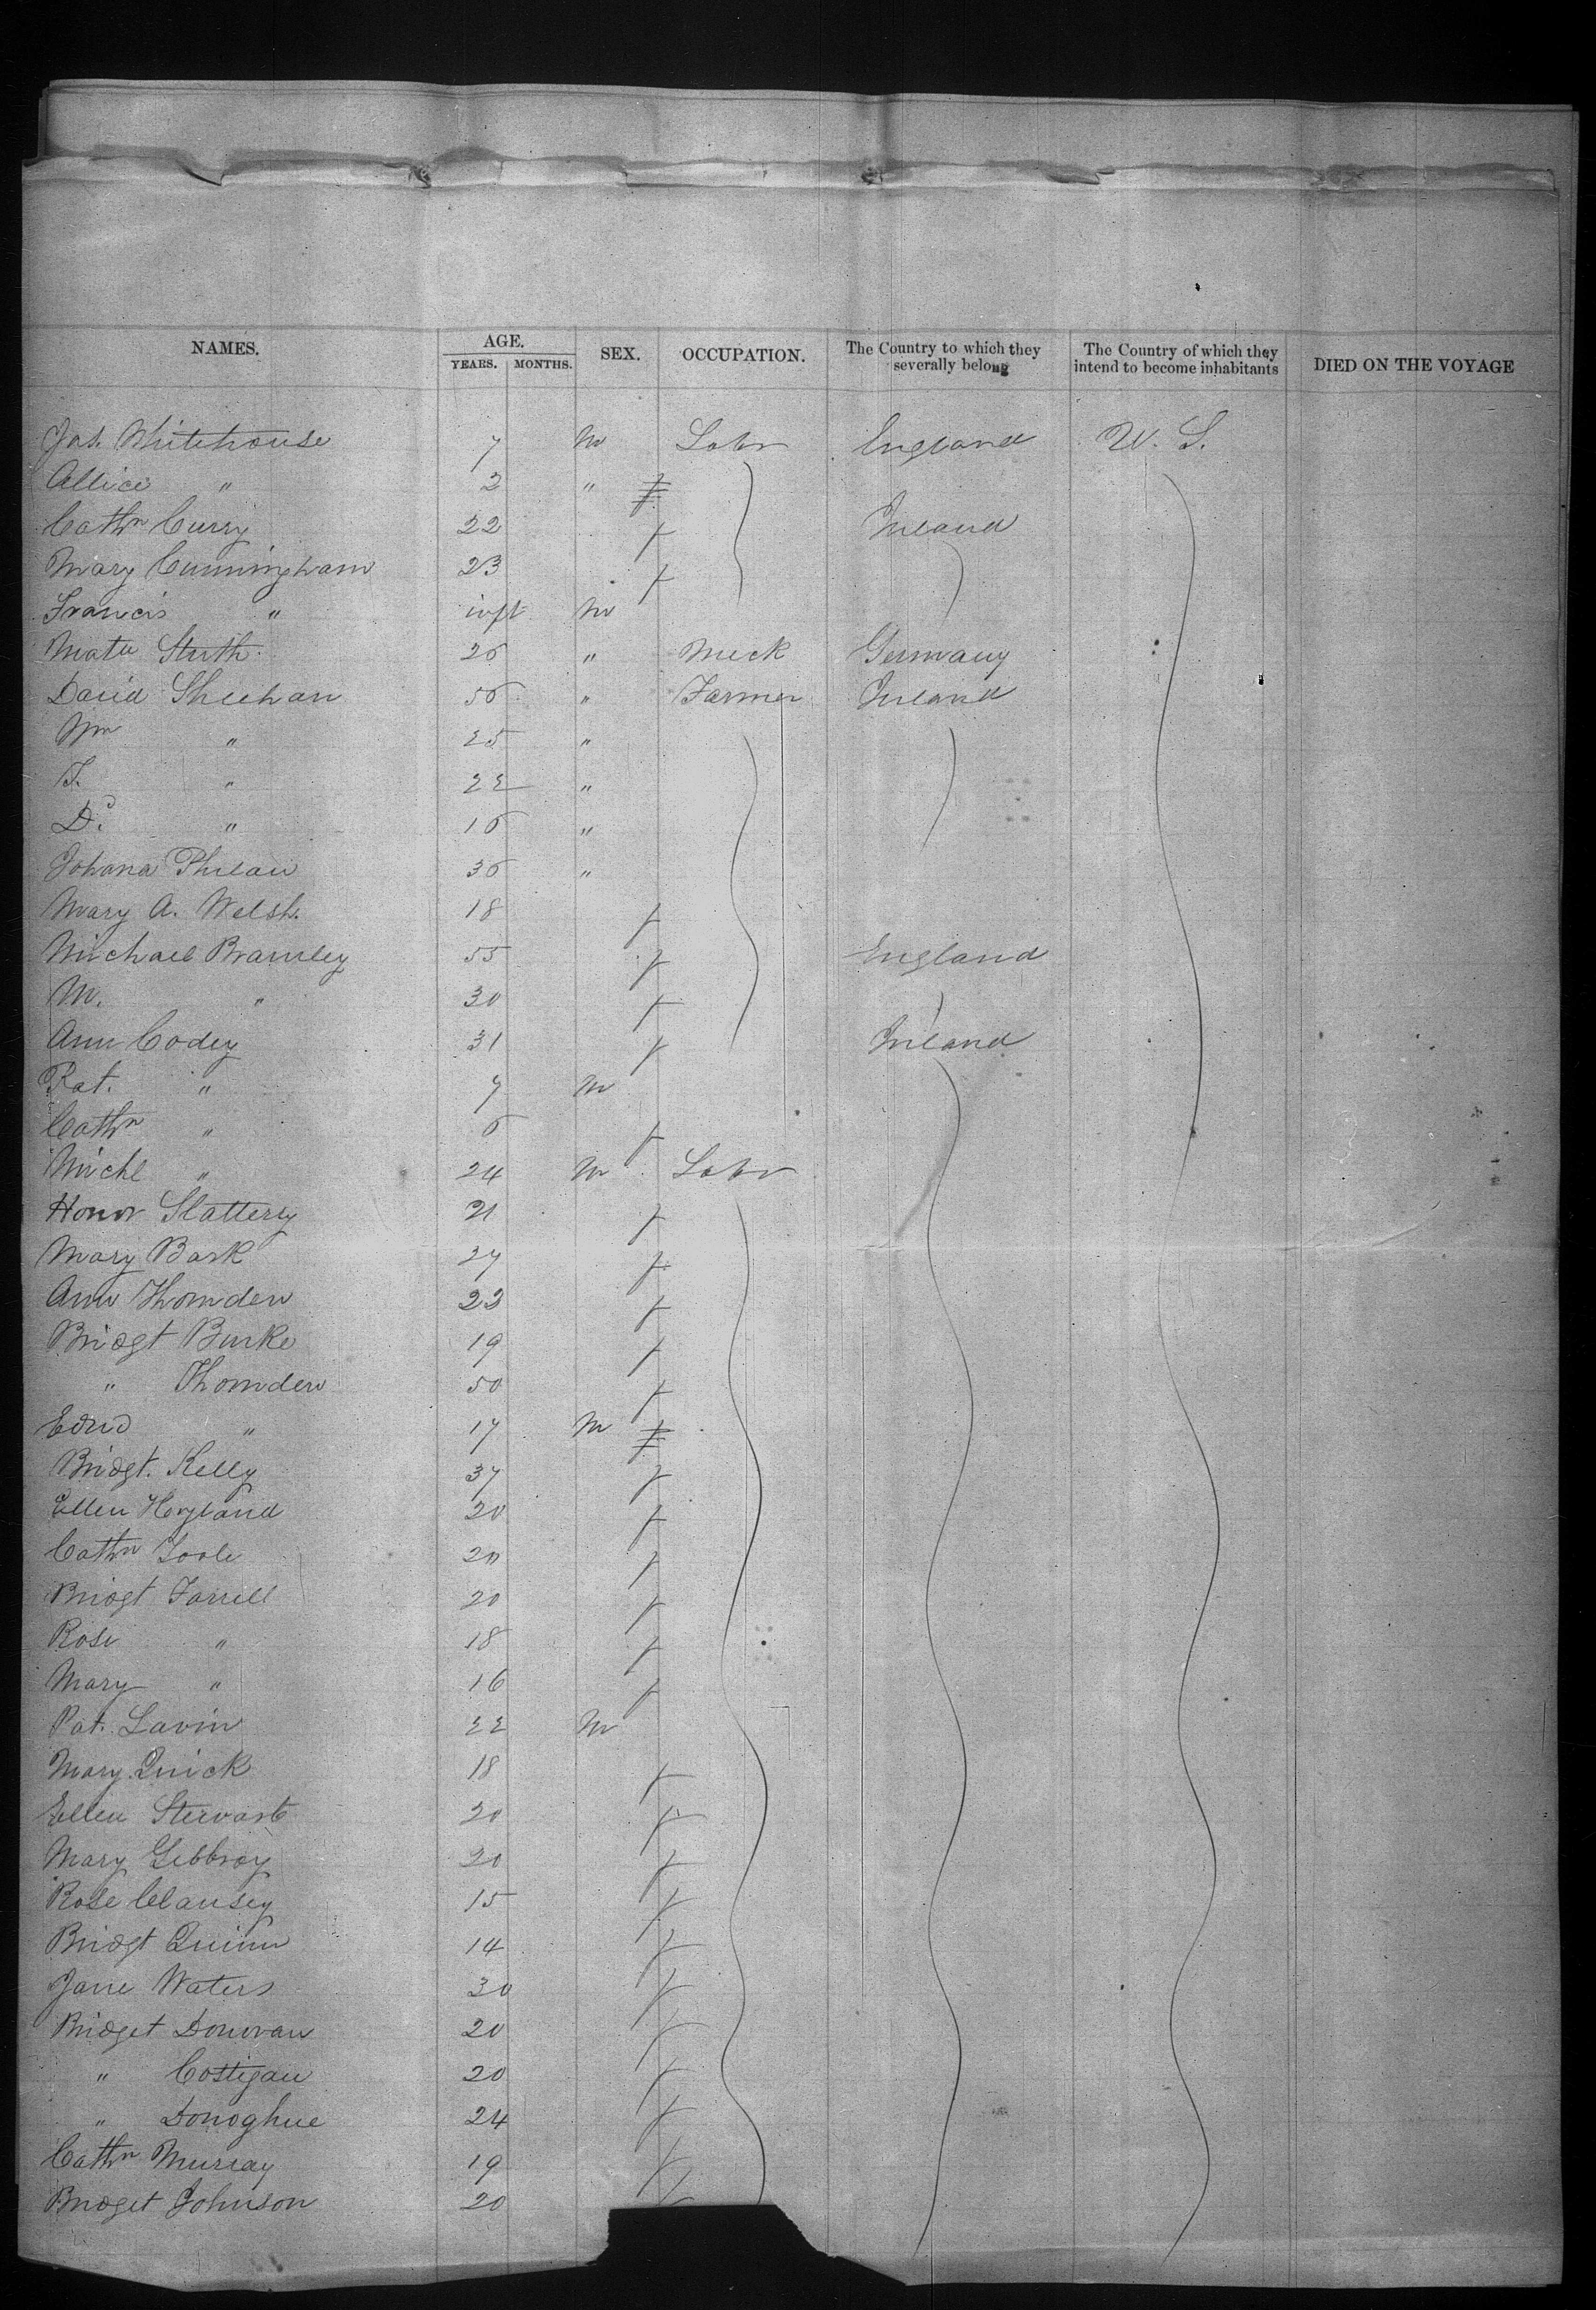 NAMES. AGE. YEARS. MONTHS. SEX. OCCUPATION. The Country to which they severally belong The Country of which they intend to become inhabitants DIED ON THE VOYAGE
Jas. Whitehouse 7 M Labr England U. S.
Allice " 2 " f
Cathn Curry 22 f Ireland
Mary Cunningham 23 f
Francis " inft M
Mate Struth 26 " Meck Germany
David Sheehan 56 " Farmer Ireland
Wm " 25 "
T. " 22 "
D. " 16 "
Johana Phelan 36 "
Mary A. Welsh. 18 f
Michael Bramley 55 f England
M. " 30 f
Ann Codey 31 f Ireland
Pat. " 7 M
Cathn " 6 f
Michl " 24 M Labr
Honor Slattery 21 f
Mary Bark 27 f
Ann Thornden 23 f
Bridgt Burke 19 f
" Thornden 50 f
Edwd " 17 M f
Bridgt. Kelly 37 f
Ellen Hoyland 20 f
Cathn Toole 20 f
Bridgt Farrell 20 f
Rose " 18 f
Mary " 16 f
Pat. Lavin 22 M
Mary Quick 18 f
Ellen Stewart 20 f
Mary Gebbroy 20 f
Rose Clansey 15 f
Bridgt Quinn 14 f
Jane Waters 30 f
Bridget Donovan 20 f
" Costigan 20 f
" Donoghue 24 f
Cathn Murray 19 f
Bridget Johnson 20 f